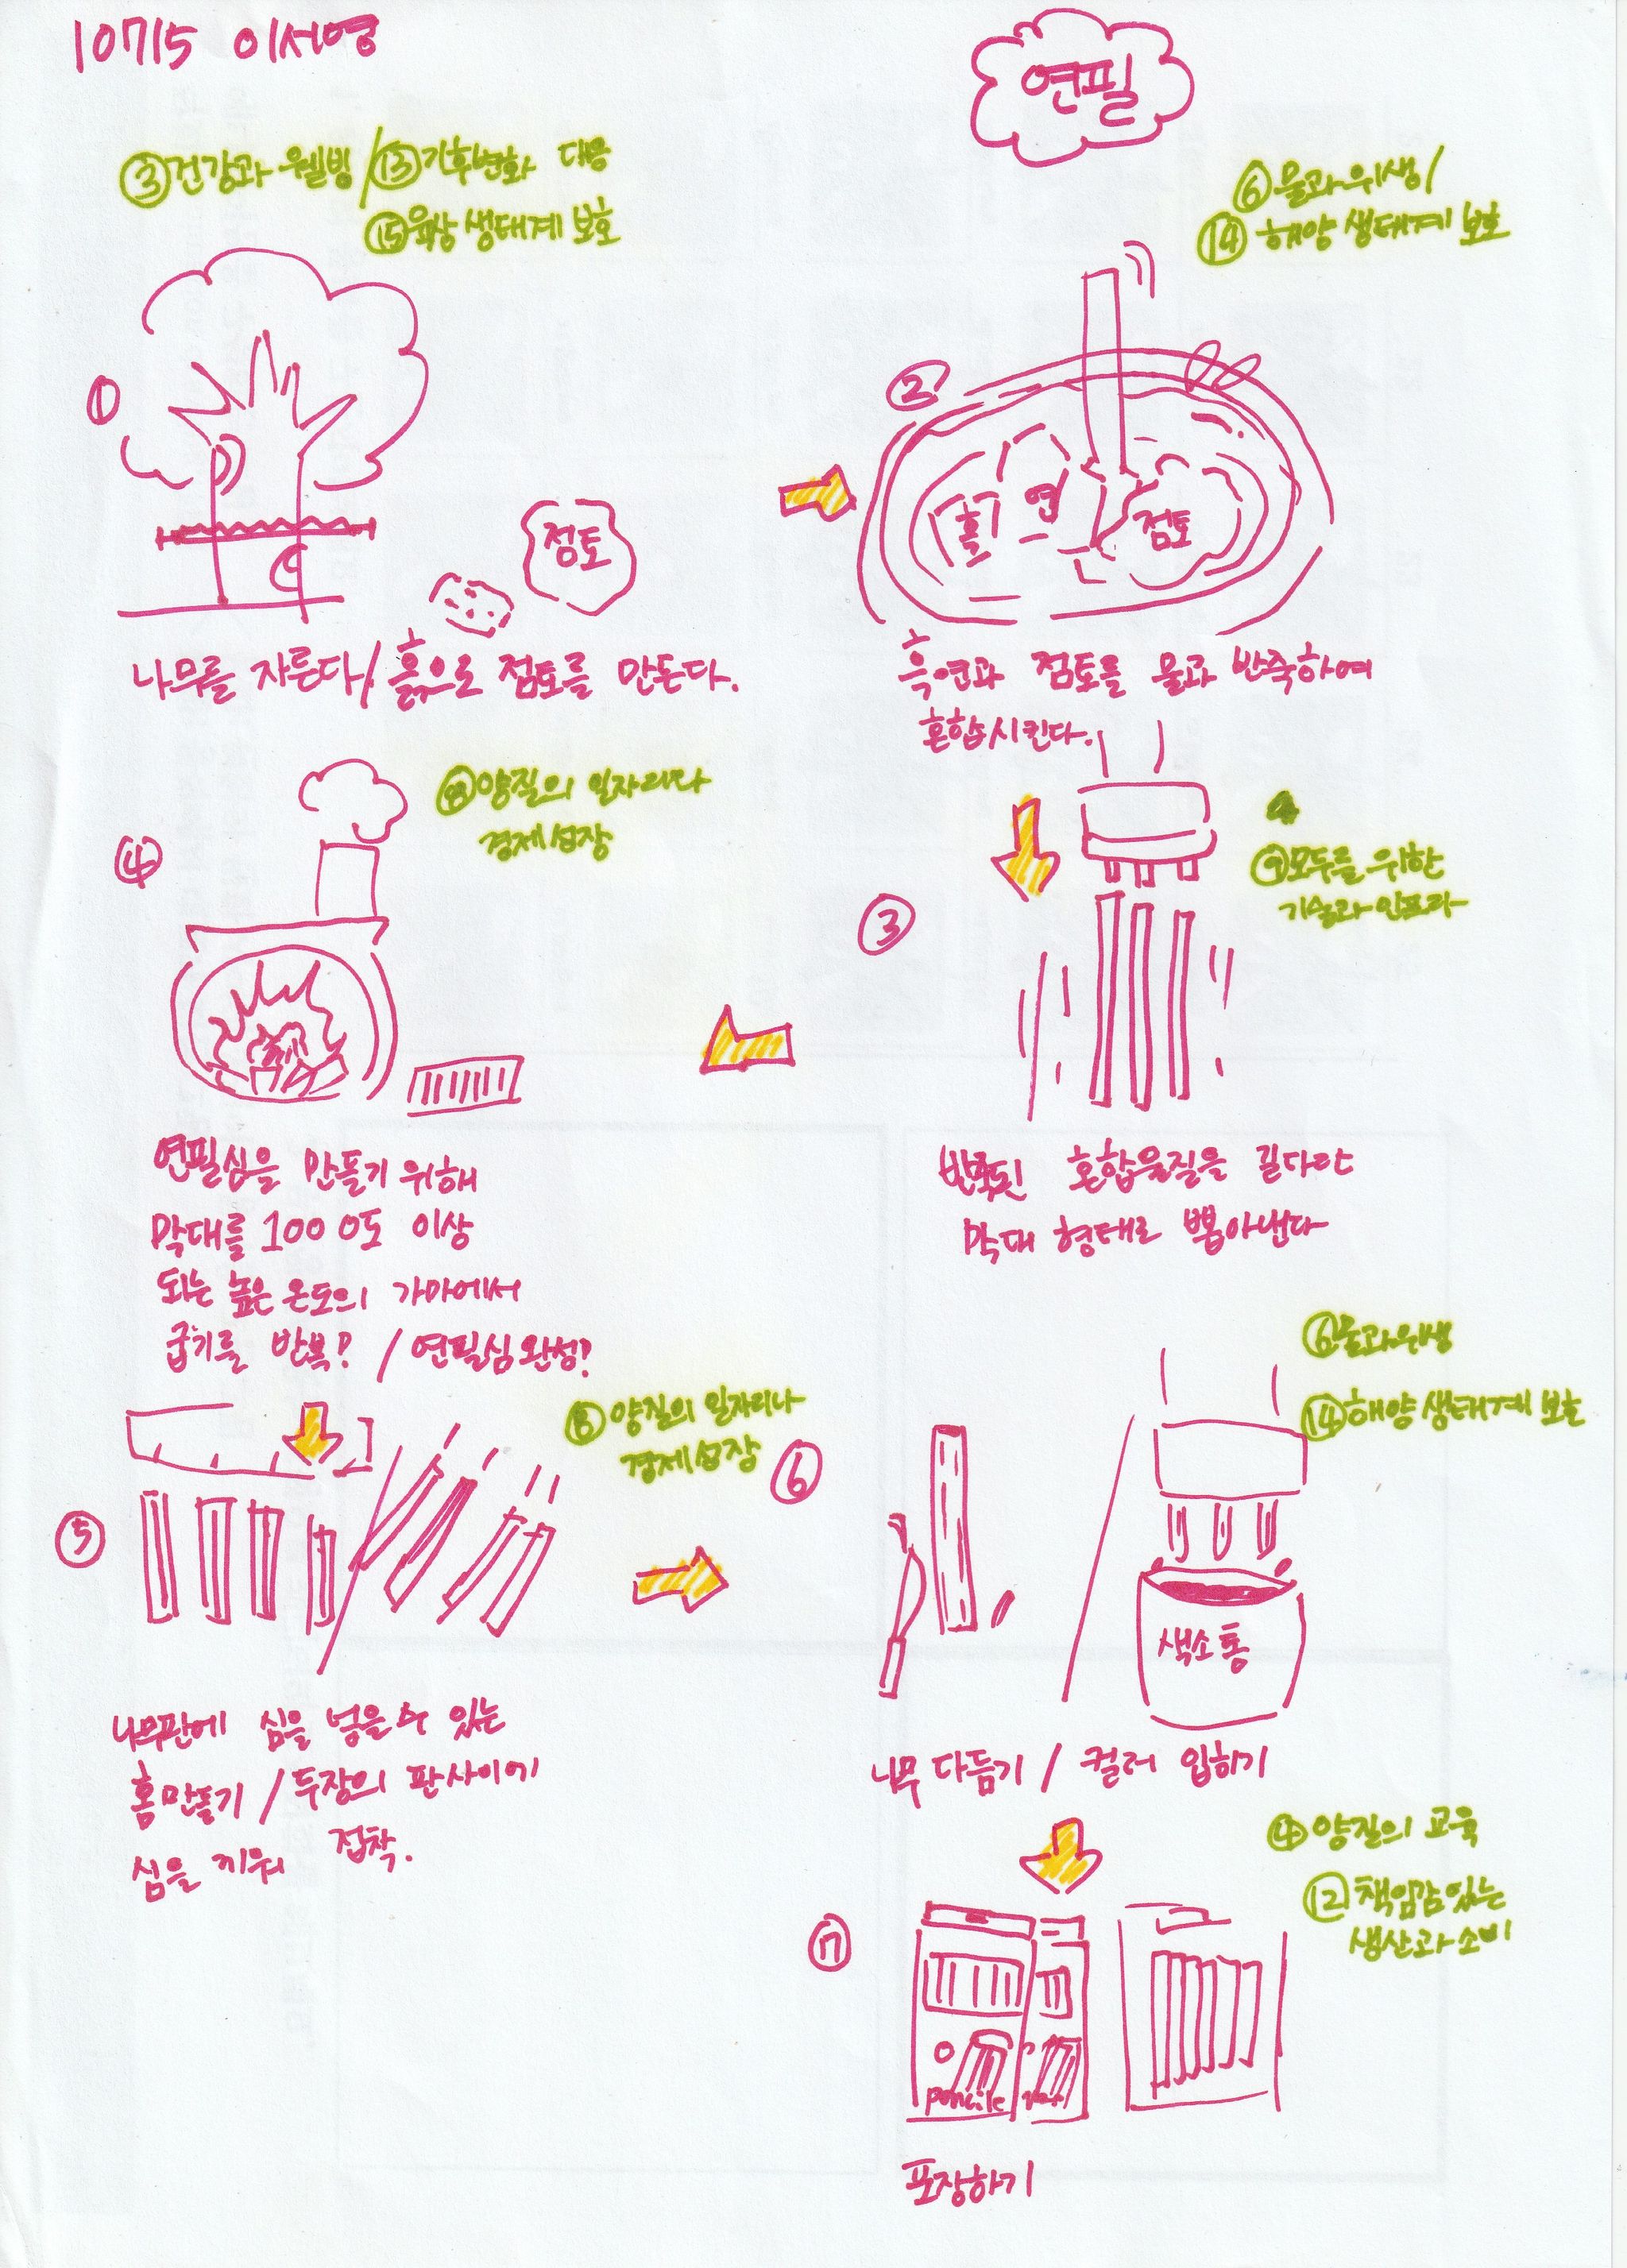 10715 이서영
연필
③건강과 웰빙/⑬기후변화 대응
⑮육상 생태계 보호
⑥물과위생/
⑭해양 생태계 보호
①
점토
나무를 자른다/흙으로 점토를 만든다.
②
흑연
점토
흑연과 점토를 물과 반죽하여
혼합시킨다.
③
⑨모두를 위한
기술과 인프라
반죽된 혼합물질을 길다란
막대 형태로 뽑아낸다
④
⑧양질의 일자리와
경제성장
연필심을 만들기 위해
막대를 1000도 이상
되는 높은 온도의 가마에서
굽기를 반복! /연필심완성!
⑤
⑧양질의 일자리와
경제성장
나무판에 심을 넣을 수 있는
홈만들기/두장의 판사이에
심을 끼워 접착.
⑥
⑥물과위생
⑭해양 생태계 보호
색소통
나무 다듬기 / 컬러 입히기
⑦
④양질의 교육
⑫책임감있는
생산과소비
pencile
포장하기